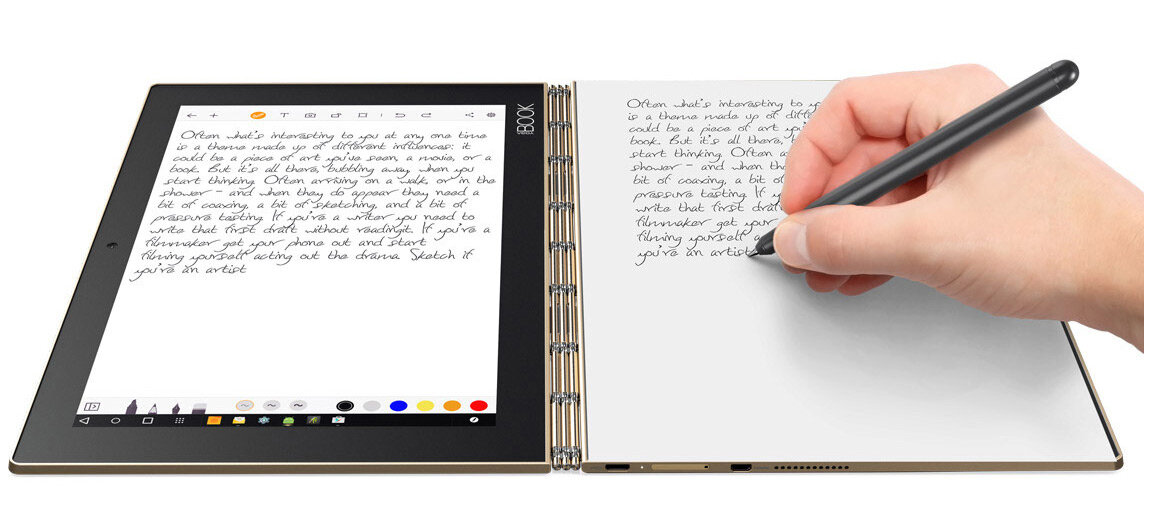 YOGA BOOK
Often what's interesting to you at any one time
is a theme made up of different influences: it
could be a piece of art you've seen, a movie, or a
book. But it's all there, bubbling away when you
start thinking. Often arriving on a walk, or in the
shower - and when they do appear they need a
bit of coaxing, a bit of sketching, and a bit of
pressure testing. If you're a writer you need to
write that first draft without readingit. If you're a
filmmaker get your phone out and start
filming yourself acting out the drama. Sketch if
you're an artist
Often what's interesting to yo
is a theme made up of diff
could be a piece of art you'
book. But it's all there, b
start thinking. Often a
shower - and when th
bit of coaxing, a bit o
pressure testing. If y
write that first draft
filmmaker get your
filming yourself a
you're an artist